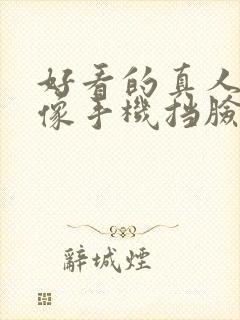 好看的真人
像手機挡臉
辭城煙